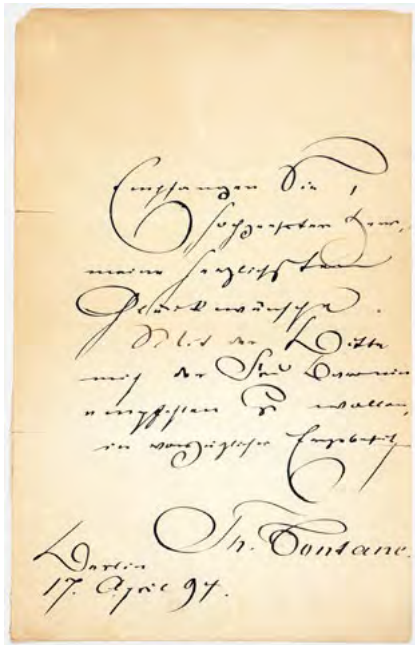 Empfangen Sie,
hochgeehrter Herr,
meine herzlichsten
Glückwünsche.
Mit der Bitte
mich der Frau Baronin
empfehlen zu wollen,
in vorzüglicher Ergebenheit
Th. Fontane.
Berlin
17. April 97.